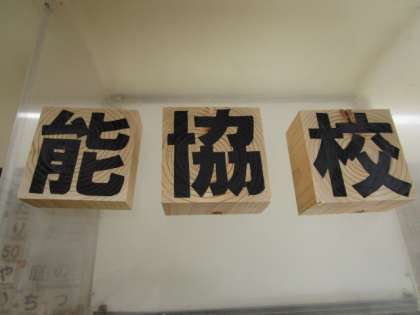 能協校